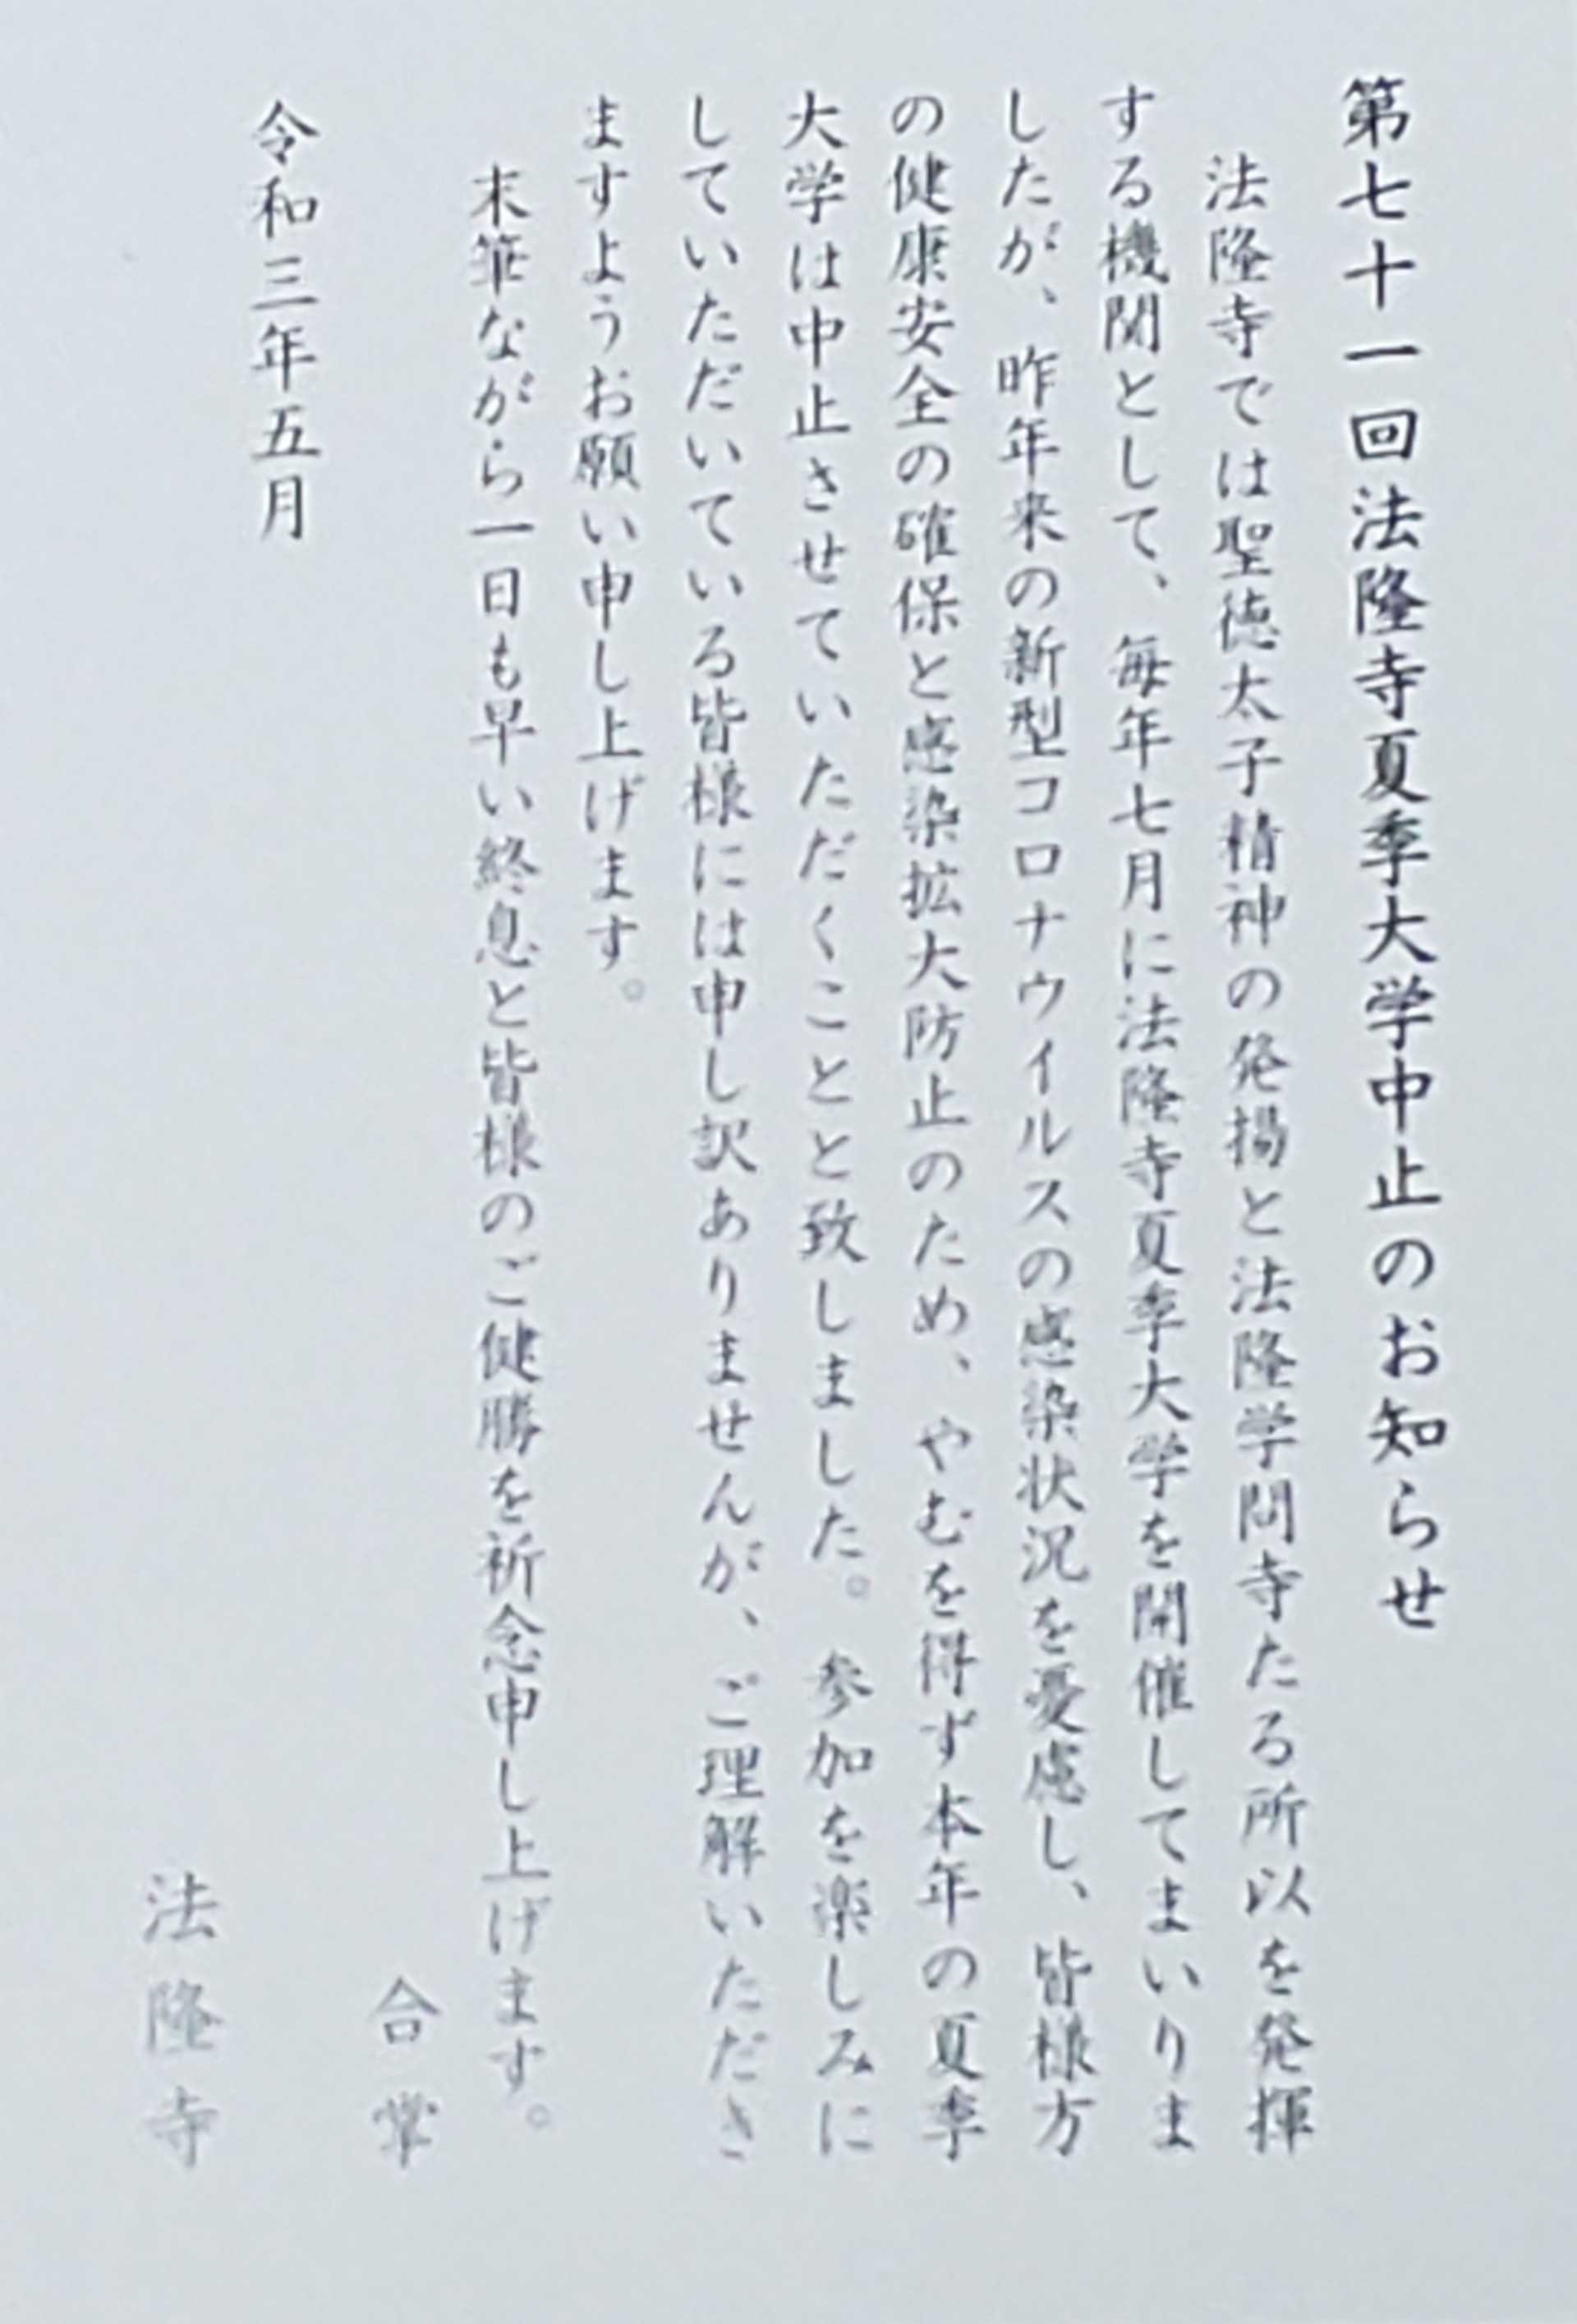 第七十一回法隆寺夏季大学中止のお知らせ
法隆寺では聖徳太子精神の発揚と法隆学問寺たる所以を発揮
する機関として、毎年七月に法隆寺夏季大学を開催してまいりま
したが、昨年来の新型コロナウィルスの感染状況を憂慮し、皆様方
の健康安全の確保と感染拡大防止のため、やむを得ず本年の夏季
大学は中止させていただくことと致しました。参加を楽しみに
していただいている皆様には申し訳ありませんが、ご理解いただき
ますようお願い申し上げます。
末筆ながら一日も早い終息と皆様のご健勝を祈念申し上げます。
合掌
令和三年五月
法隆寺